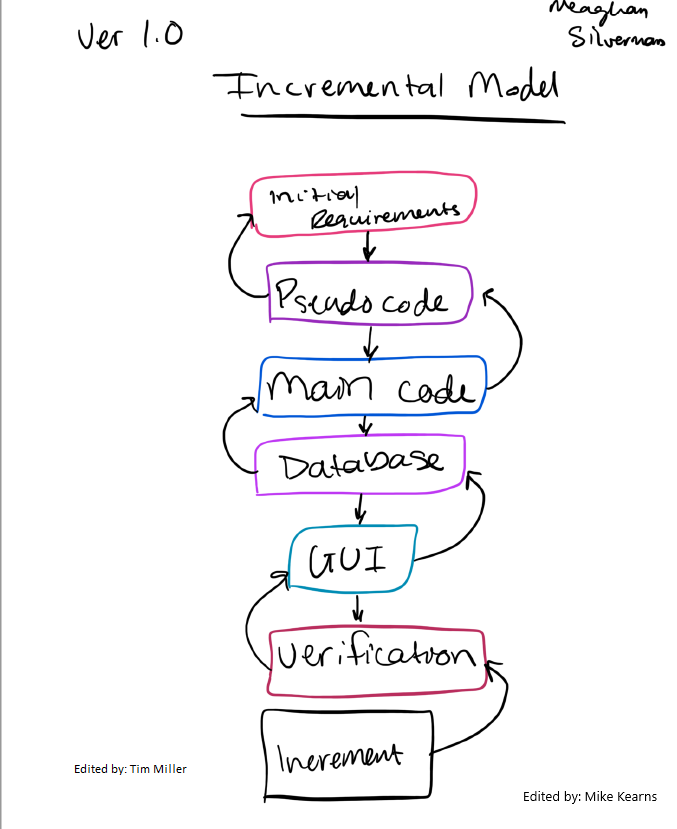 Ver 1.0
Meaghan
Silverman
Incremental Model
Initial
Requirements
Pseudo code
Main code
Database
GUI
Verification
Increment
Edited by: Tim Miller
Edited by: Mike Kearns